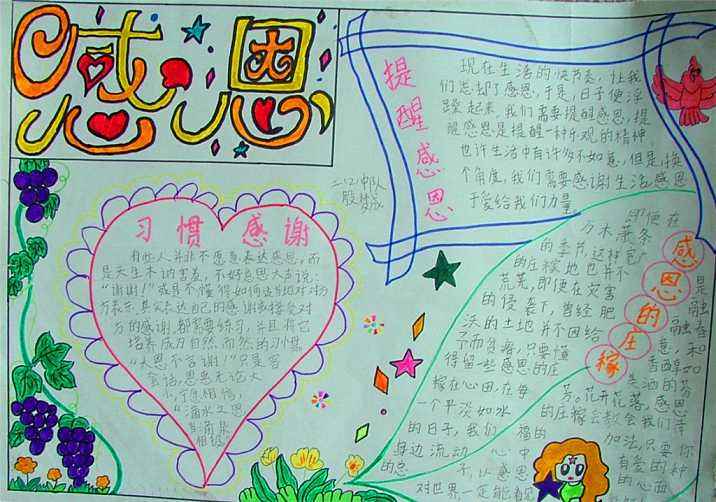 感恩
提醒感恩
现在生活的快节奏,让我
们忘却了感恩,于是,日子便浮
躁起来,我们需要提醒感恩,提
醒感恩是提醒一种乐观的精神,
也许生活中有许多不如意,但是,换
个角度,我们需要感谢生活,感恩
于爱给我们力量
二(2)中队
习惯感谢
有些人并非不愿意表达感恩,而
是天生木讷害羞,不好意思大声说:
“谢谢!”或是不懂得如何适当地对对
方表示,其实表达自己的感谢或接受对
方的感谢,都需要练习,并且将它
培养成为自然而然的习惯
“大恩不言谢!”只是客
套话,恩惠无论大
小,了应相信,
“滴水之恩
当涌泉
相报”
感恩的庄稼
即便在
万木萧条
的季节,这种
的庄稼地也并不
荒芜,即便在灾害
的侵袭下,曾经肥
沃的土地并不因给
予而贫瘠,只要懂
得留一些感恩的庄
稼在心田,在每
一个平淡如水
的日子,我们
身边流动
的庄稼会教会我们幸
加法,只要你
有爱的种
对世界一定能